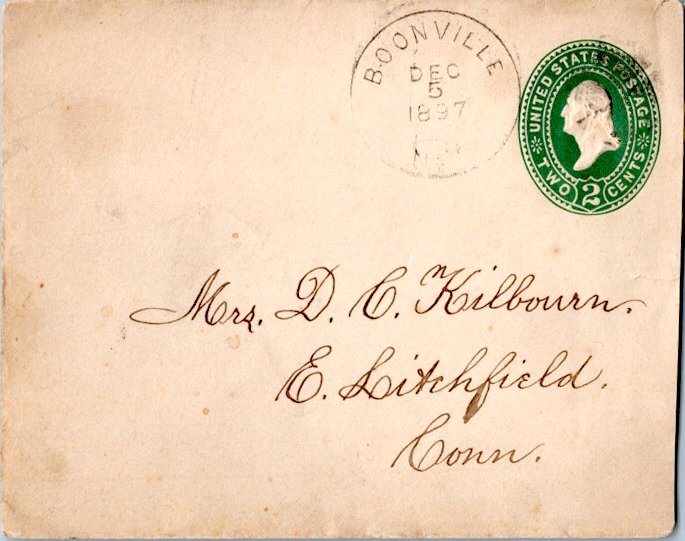 BOONVILLE
DEC
5
1897
UNITED STATES POSTAGE
TWO 2 CENTS
Mrs. D. C. Kilbourn.
E. Litchfield.
Conn.